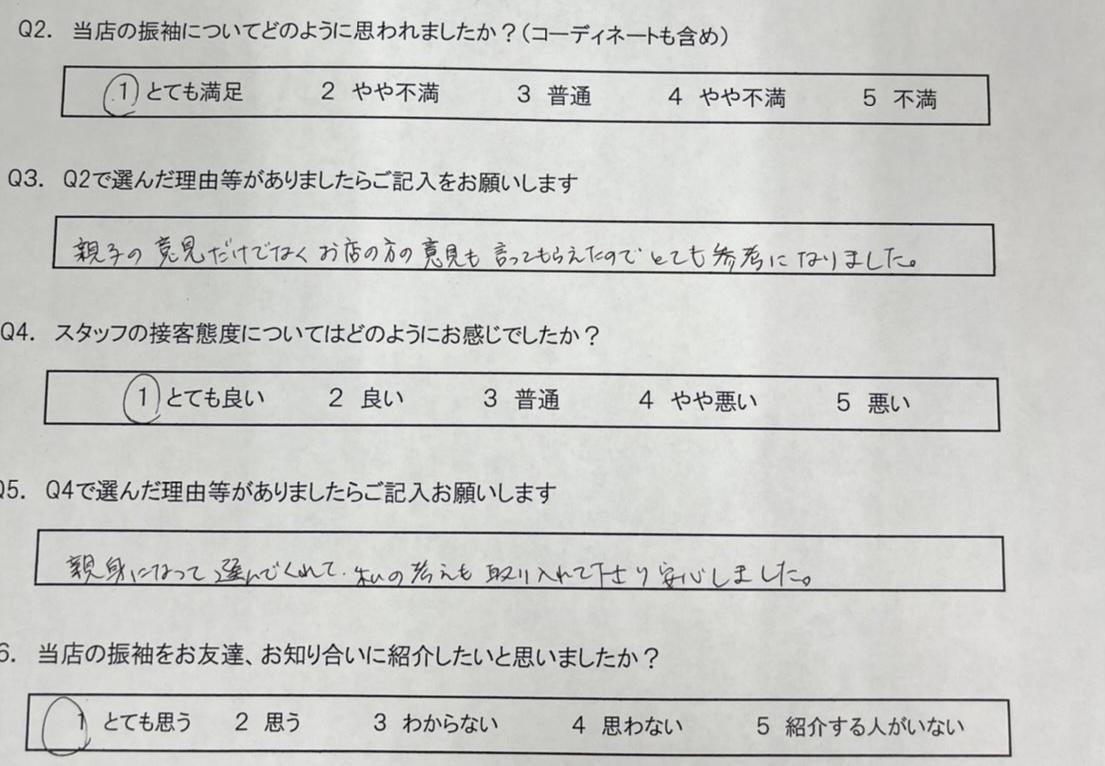 Q2. 当店の振袖についてどのように思われましたか？(コーディネートも含め)
1 とても満足 2 やや不満 3 普通 4 やや不満 5 不満
Q3. Q2で選んだ理由等がありましたらご記入をお願いします
親子の意見だけでなくお店の方の意見も言ってもらえたのでとても参考になりました。
Q4. スタッフの接客態度についてはどのようにお感じでしたか？
1 とても良い 2 良い 3 普通 4 やや悪い 5 悪い
Q5. Q4で選んだ理由等がありましたらご記入お願いします
親身になって選んでくれて、私の考えも取り入れて下さり安心しました。
6. 当店の振袖をお友達、お知り合いに紹介したいと思いましたか？
1 とても思う 2 思う 3 わからない 4 思わない 5 紹介する人がいない